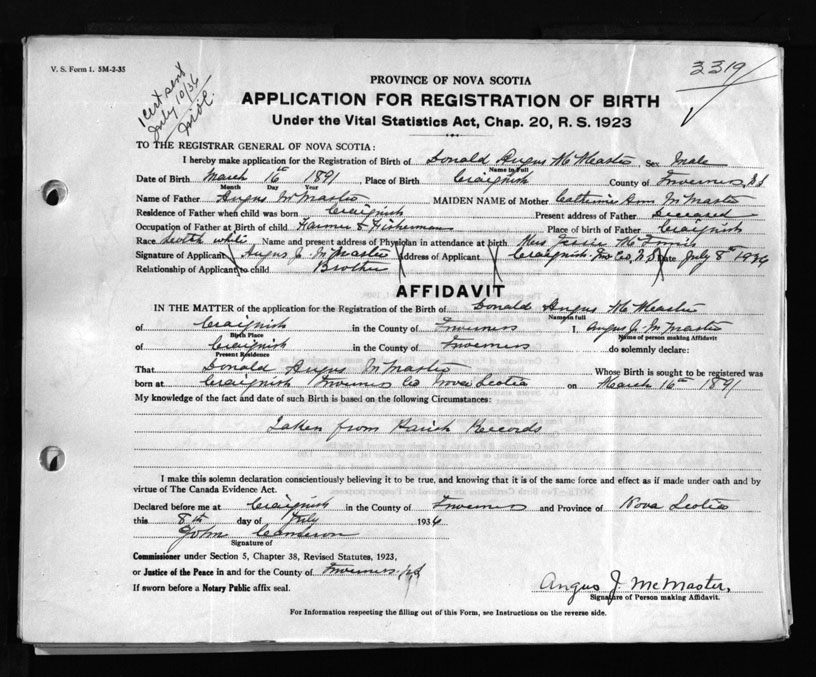 V. S. Form 1. 5M-2-35
3319
1 Cert sent
July 10/36
PROVINCE OF NOVA SCOTIA
APPLICATION FOR REGISTRATION OF BIRTH
Under the Vital Statistics Act, Chap. 20, R. S. 1923
TO THE REGISTRAR GENERAL OF NOVA SCOTIA:
I hereby make application for the Registration of Birth of Donald Angus McMaster, Sex male
Name in Full
Date of Birth March 16th 1891, Place of Birth Craignish County of Inverness, N S
Month Day Year
Name of Father Angus McMaster MAIDEN NAME of Mother Catherine Ann McMaster
Residence of Father when child was born Craignish Present address of Father Deceased
Occupation of Father at Birth of child Farmer & Fisherman Place of birth of Father Craignish
Race Scotch white Name and present address of Physician in attendance at birth Mrs Jessie McInnis
Signature of Applicant Angus J. McMaster Address of Applicant Craignish Inv Co, N S Date July 8th 1936
Relationship of Applicant to child Brother
AFFIDAVIT
IN THE MATTER of the application for the Registration of the Birth of Donald Angus McMaster
Name in full
of Craignish in the County of Inverness I, Angus J. McMaster
Birth Place Name of person making Affidavit
of Craignish in the County of Inverness do solemnly declare:
Present Residence
That Donald Angus McMaster Whose Birth is sought to be registered was
born at Craignish Inverness Co Nova Scotia on March 16th 1891
My knowledge of the fact and date of such Birth is based on the following Circumstances:
Taken from Parish Records
I make this solemn declaration conscientiously believing it to be true, and knowing that it is of the same force and effect as if made under oath and by
virtue of The Canada Evidence Act.
Declared before me at Craignish in the County of Inverness and Province of Nova Scotia
this 8th day of July 1936
John Cameron
Signature of
Commissioner under Section 5, Chapter 38, Revised Statutes, 1923,
or Justice of the Peace in and for the County of Inverness
If sworn before a Notary Public affix seal.
Angus J. McMaster,
Signature of Person making Affidavit.
For Information respecting the filling out of this Form, see Instructions on the reverse side.